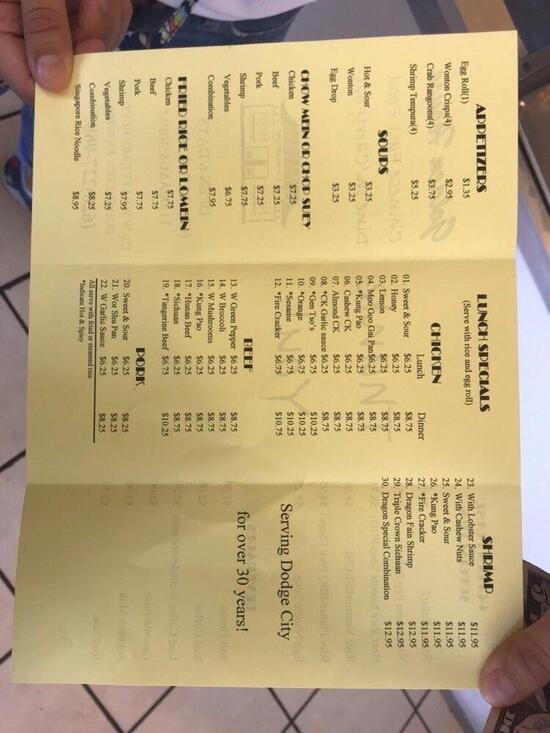 APPETIZERS
Egg Roll(1) $1.35
Wonton Crisps(4) $2.95
Crab Rangoons(4) $3.75
Shrimp Tempura(4) $5.25
SOUPS
Hot & Sour $3.25
Wonton $3.25
Egg Drop $3.25
CHOW MEIN OR CHOP SUEY
Chicken $7.25
Beef $7.25
Pork $7.25
Shrimp $7.75
Vegetables $6.75
Combination $7.95
FRIED RICE OR LOMEIN
Chicken $7.75
Beef $7.75
Pork $7.75
Shrimp $7.95
Vegetables $7.25
Combination $8.25
Singapore Rice Noodle $8.95
LUNCH SPECIALS
(Serve with rice and egg roll)
CHICKEN
Lunch Dinner
01. Sweet & Sour $6.25 $8.75
02. Honey $6.25 $8.75
03. Lemon $6.25 $8.75
04. Moo Goo Gai Pan $6.25 $8.75
05. *Kung Pao $6.25 $8.75
06. Cashew CK $6.25 $8.75
07. Almond CK $6.25 $8.75
08. *CK Garlic sauce $6.25 $8.75
09. *Gen Tso's $6.75 $10.25
10. *Orange $6.75 $10.25
11. *Sesame $6.75 $10.25
12. *Fire Cracker $6.75 $10.75
BEEF
13. W Green Pepper $6.25 $8.75
14. W Broccoli $6.25 $8.75
15. W Mushrooms $6.25 $8.75
16. *Kung Pao $6.25 $8.75
17. *Hunan Beef $6.25 $8.75
18. *Sichuan $6.25 $8.75
19. *Tangerine Beef $6.75 $10.25
PORK
20. Sweet & Sour $6.25 $8.25
21. Wor Shu Pan $6.25 $8.25
22. W Garlic Sauce $6.25 $8.25
All serve with fried or steamed rice
*Indicate Hot & Spicy
SHRIMP
23. With Lobster Sauce $11.95
24. With Cashew Nuts $11.95
25. Sweet & Sour $11.95
26. *Kung Pao $11.95
27. *Fire Cracker $11.95
28. Dragon Fain Shrimp $12.95
29. Triple Crown Sichuan $12.95
30. Dragon Special Combination $12.95
Serving Dodge City
for over 30 years!